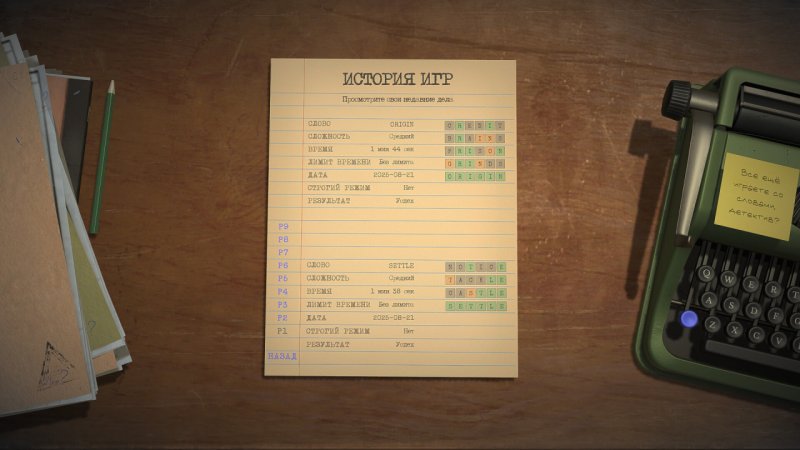 ИСТОРИЯ ИГР
Просмотрите свои недавние дела.
СЛОВО ORIGIN
СЛОЖНОСТЬ Средний
ВРЕМЯ 1 мин 44 сек
ЛИМИТ ВРЕМЕНИ Без лимита
ДАТА 2025-08-21
СТРОГИЙ РЕЖИМ Нет
РЕЗУЛЬТАТ Успех
CREDIT
BRAINS
PRISON
GRINDS
ORIGIN
P9
P8
P7
P6
P5
P4
P3
P2
P1
НАЗАД
СЛОВО SETTLE
СЛОЖНОСТЬ Средний
ВРЕМЯ 1 мин 38 сек
ЛИМИТ ВРЕМЕНИ Без лимита
ДАТА 2025-08-21
СТРОГИЙ РЕЖИМ Нет
РЕЗУЛЬТАТ Успех
NOTICE
TACKLE
CASTLE
SETTLE
Все ещё
играете со
словами,
детектив?
Q W E R T
A S D F G
Z X C V